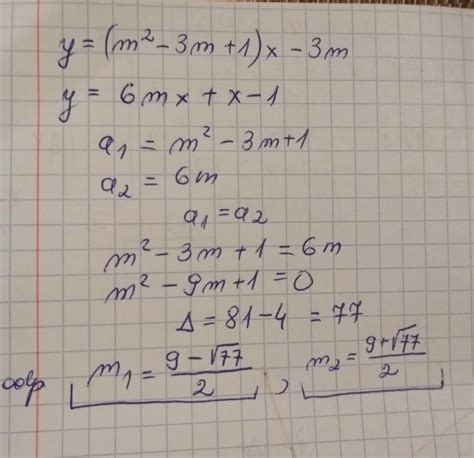 y = (m² - 3m + 1)x - 3m
y = 6mx + x - 1
a₁ = m² - 3m + 1
a₂ = 6m
a₁ = a₂
m² - 3m + 1 = 6m
m² - 9m + 1 = 0
Δ = 81 - 4 = 77
odp m₁ = (9 - √77)/2 , m₂ = (9 + √77)/2